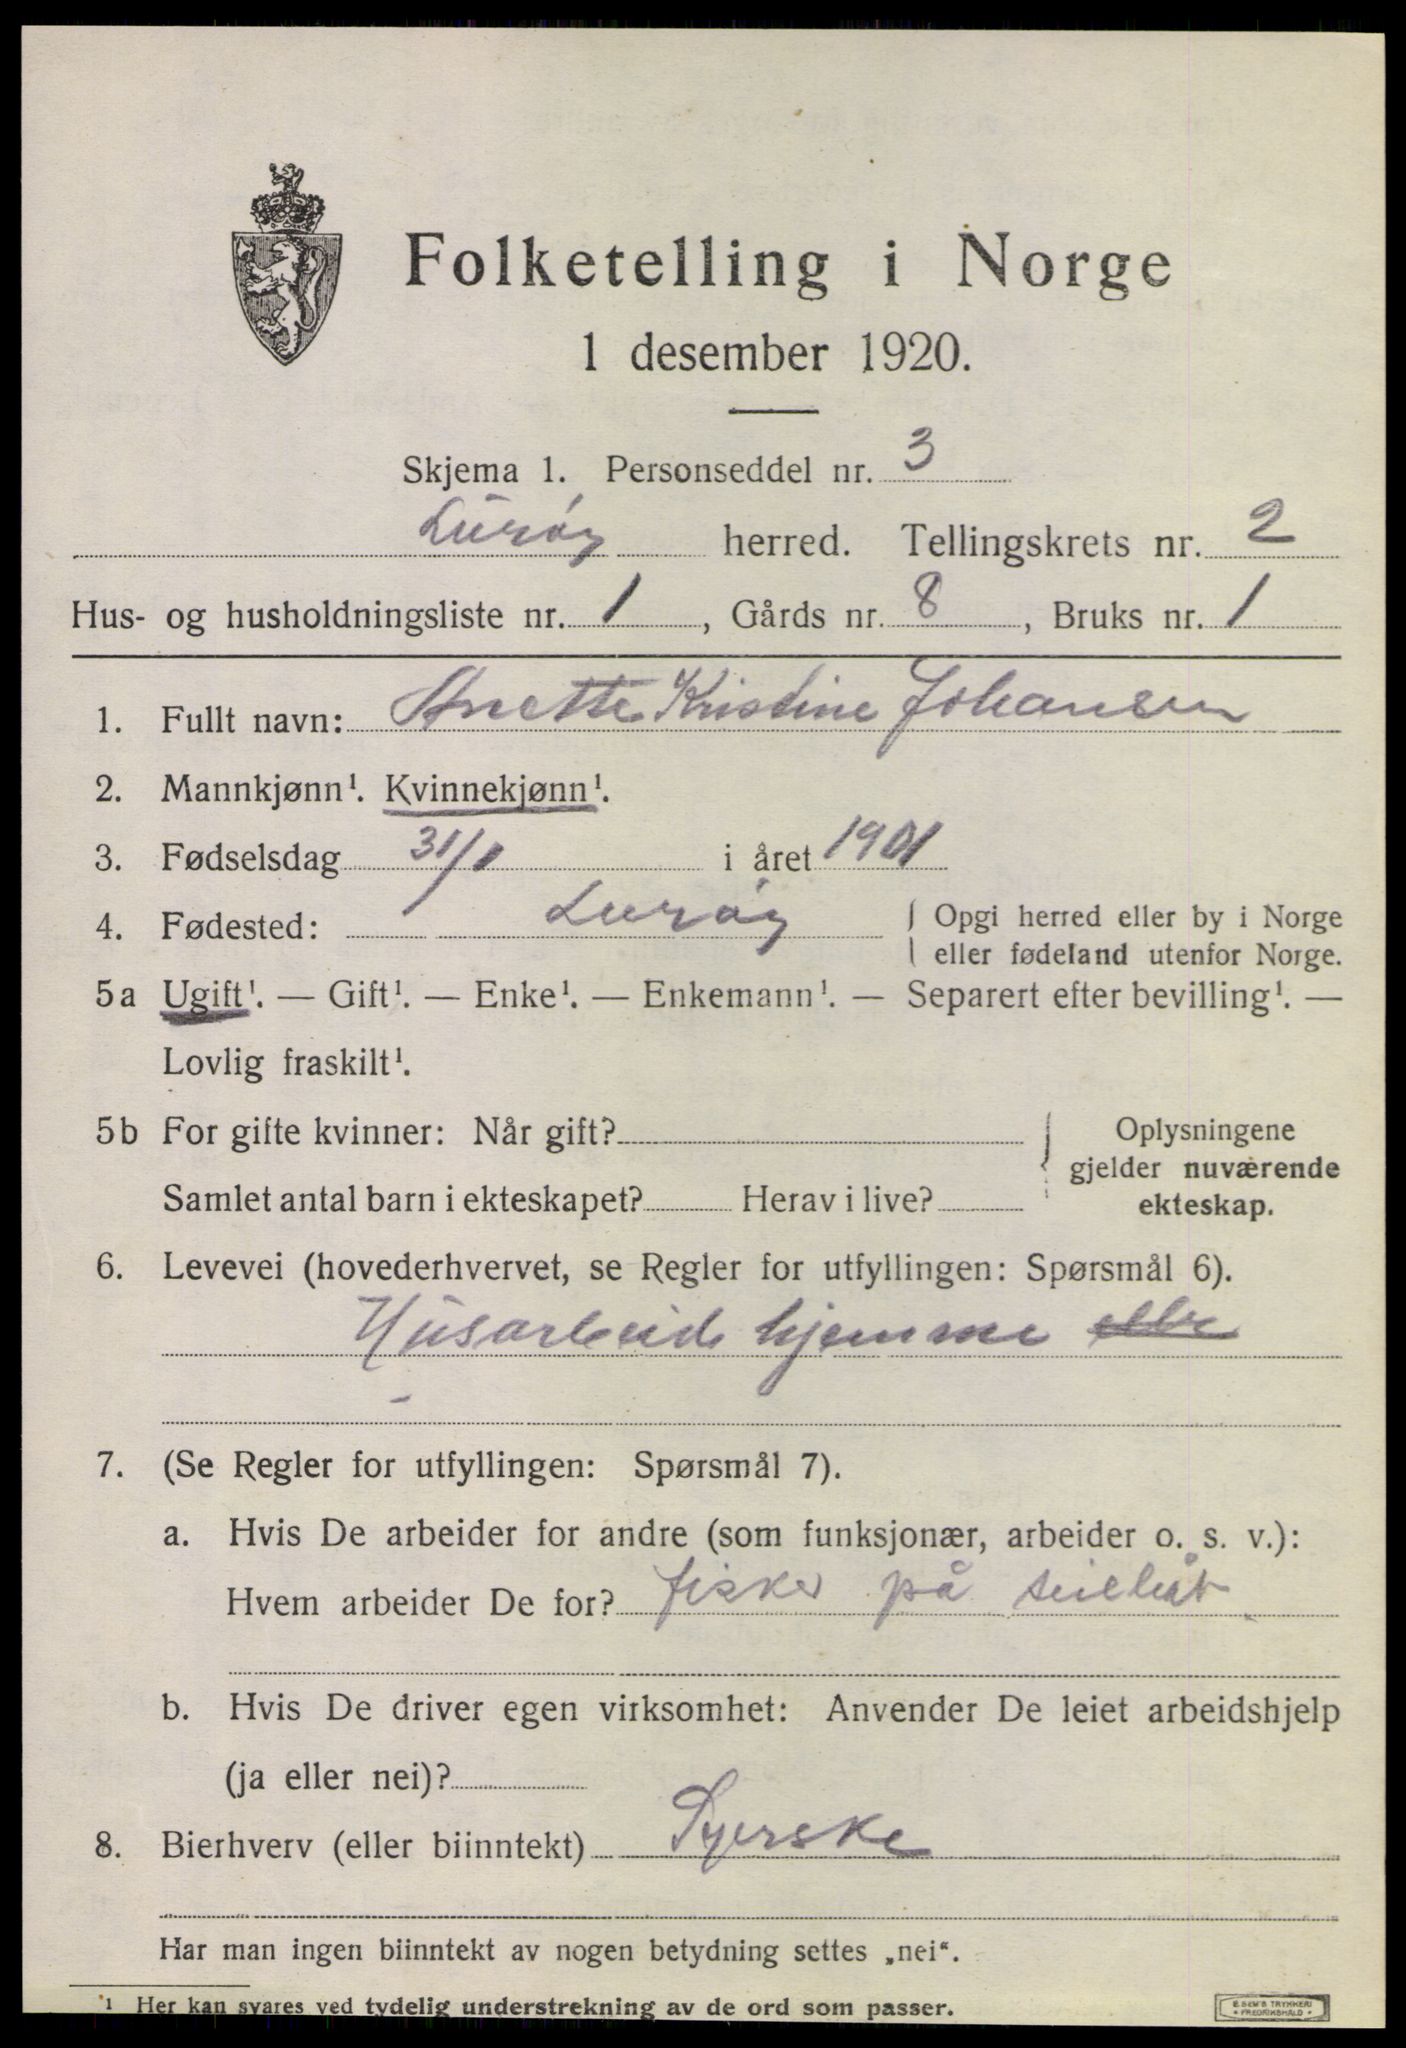 Folketelling i Norge
1 desember 1920.
Skjema 1. Personseddel nr. 3
Lurøy herred. Tellingskrets nr. 2
Hus- og husholdningsliste nr. 1, Gårds nr. 8, Bruks nr. 1
1. Fullt navn: Anette Kristine Johansen
2. Mannkjønn¹. Kvinnekjønn¹.
3. Fødselsdag 31/1 i året 1901
4. Fødested: Lurøy { Opgi herred eller by i Norge
eller fødeland utenfor Norge.
5a Ugift¹. — Gift¹. — Enke¹. — Enkemann¹. — Separert efter bevilling¹. —
Lovlig fraskilt¹.
5b For gifte kvinner: Når gift? Oplysningene
gjelder nuværende
Samlet antal barn i ekteskapet? Herav i live? ekteskap.
6. Levevei (hovederhvervet, se Regler for utfyllingen: Spørsmål 6).
Husarbeid hjemme
7. (Se Regler for utfyllingen: Spørsmål 7).
a. Hvis De arbeider for andre (som funksjonær, arbeider o. s. v.):
Hvem arbeider De for? fisker på seilbåt
b. Hvis De driver egen virksomhet: Anvender De leiet arbeidshjelp
(ja eller nei)?
8. Bierhverv (eller biinntekt) Syerske
Har man ingen biinntekt av nogen betydning settes „nei“.
¹ Her kan svares ved tydelig understrekning av de ord som passer.
E. SEM'S TRYKKERI
FREDRIKSHALD